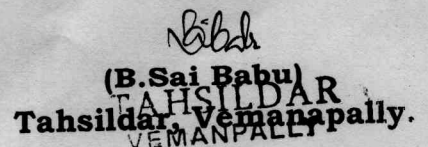 (B.Sai Babu)
TAHSILDAR
Tahsildar, Vemanapally.
VEMANPALLY